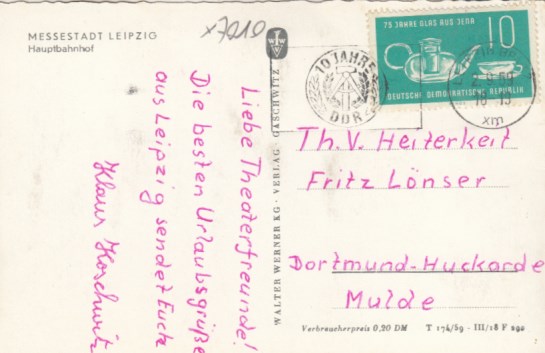 MESSESTADT LEIPZIG
Hauptbahnhof
x7010
Liebe Theaterfreunde!
Die besten Urlaubsgrüße
aus Leipzig sendet Euch
Klaus Koschwitz
WALTER WERNER KG · VERLAG · GASCHWITZ
10 JAHRE
DDR
75 JAHRE GLAS AUS JENA 10
DEUTSCHE DEMOKRATISCHE REPUBLIK
Th. V. Heiterkeit
Fritz Lönser
Dortmund-Huckarde
Mulde
Verbraucherpreis 0,20 DM T 174/59 - III/18 F 292